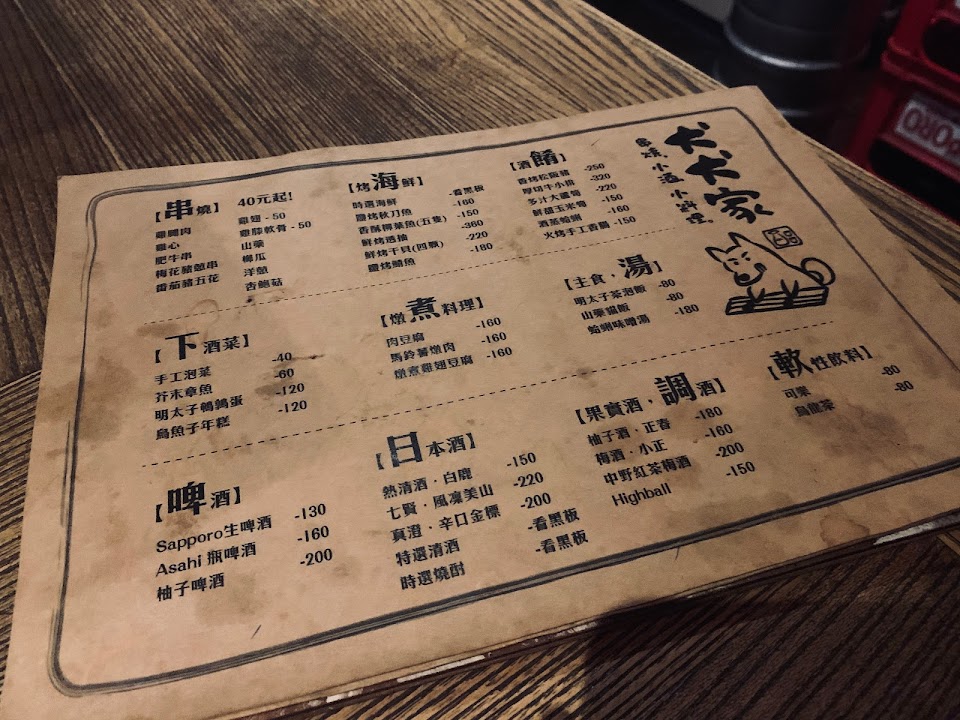 犬犬家
串燒。小酒。小料理。
【串燒】 40元起!
雞腿肉
雞心
肥牛串
梅花豬蔥串
番茄豬五花
雞翅 - 50
雞膝軟骨 - 50
山藥
櫛瓜
洋蔥
杏鮑菇
【烤海鮮】
時選海鮮 -看黑板
鹽烤秋刀魚 -160
香酥柳葉魚(五隻) -150
鮮烤透抽 -360
鮮烤干貝(四顆) -220
鹽烤鯖魚 -180
【酒餚】
香烤松阪豬 -250
厚切牛小排 -320
多汁大蘆筍 -220
鮮甜玉米筍 -150
酒蒸蛤蜊 -160
火烤手工香腸 -150
【下酒菜】
手工泡菜 -40
芥末章魚 -60
明太子鵪鶉蛋 -120
烏魚子年糕 -120
【燉煮料理】
肉豆腐 -160
馬鈴薯燉肉 -160
燉煮雞翅豆腐 -160
【主食,湯】
明太子茶泡飯 -80
山藥貓飯 -80
蛤蜊味噌湯 -180
【啤酒】
Sapporo生啤酒 -130
Asahi 瓶啤酒 -160
柚子啤酒 -200
【日本酒】
熱清酒．白鹿 -150
七賢．風凜美山 -220
真澄．辛口金標 -200
特選清酒 -看黑板
時選燒酎 -看黑板
【果實酒,調酒】
柚子酒．正春 -180
梅酒．小正 -160
中野紅茶梅酒 -200
Highball -150
【軟性飲料】
可樂 -80
烏龍茶 -80